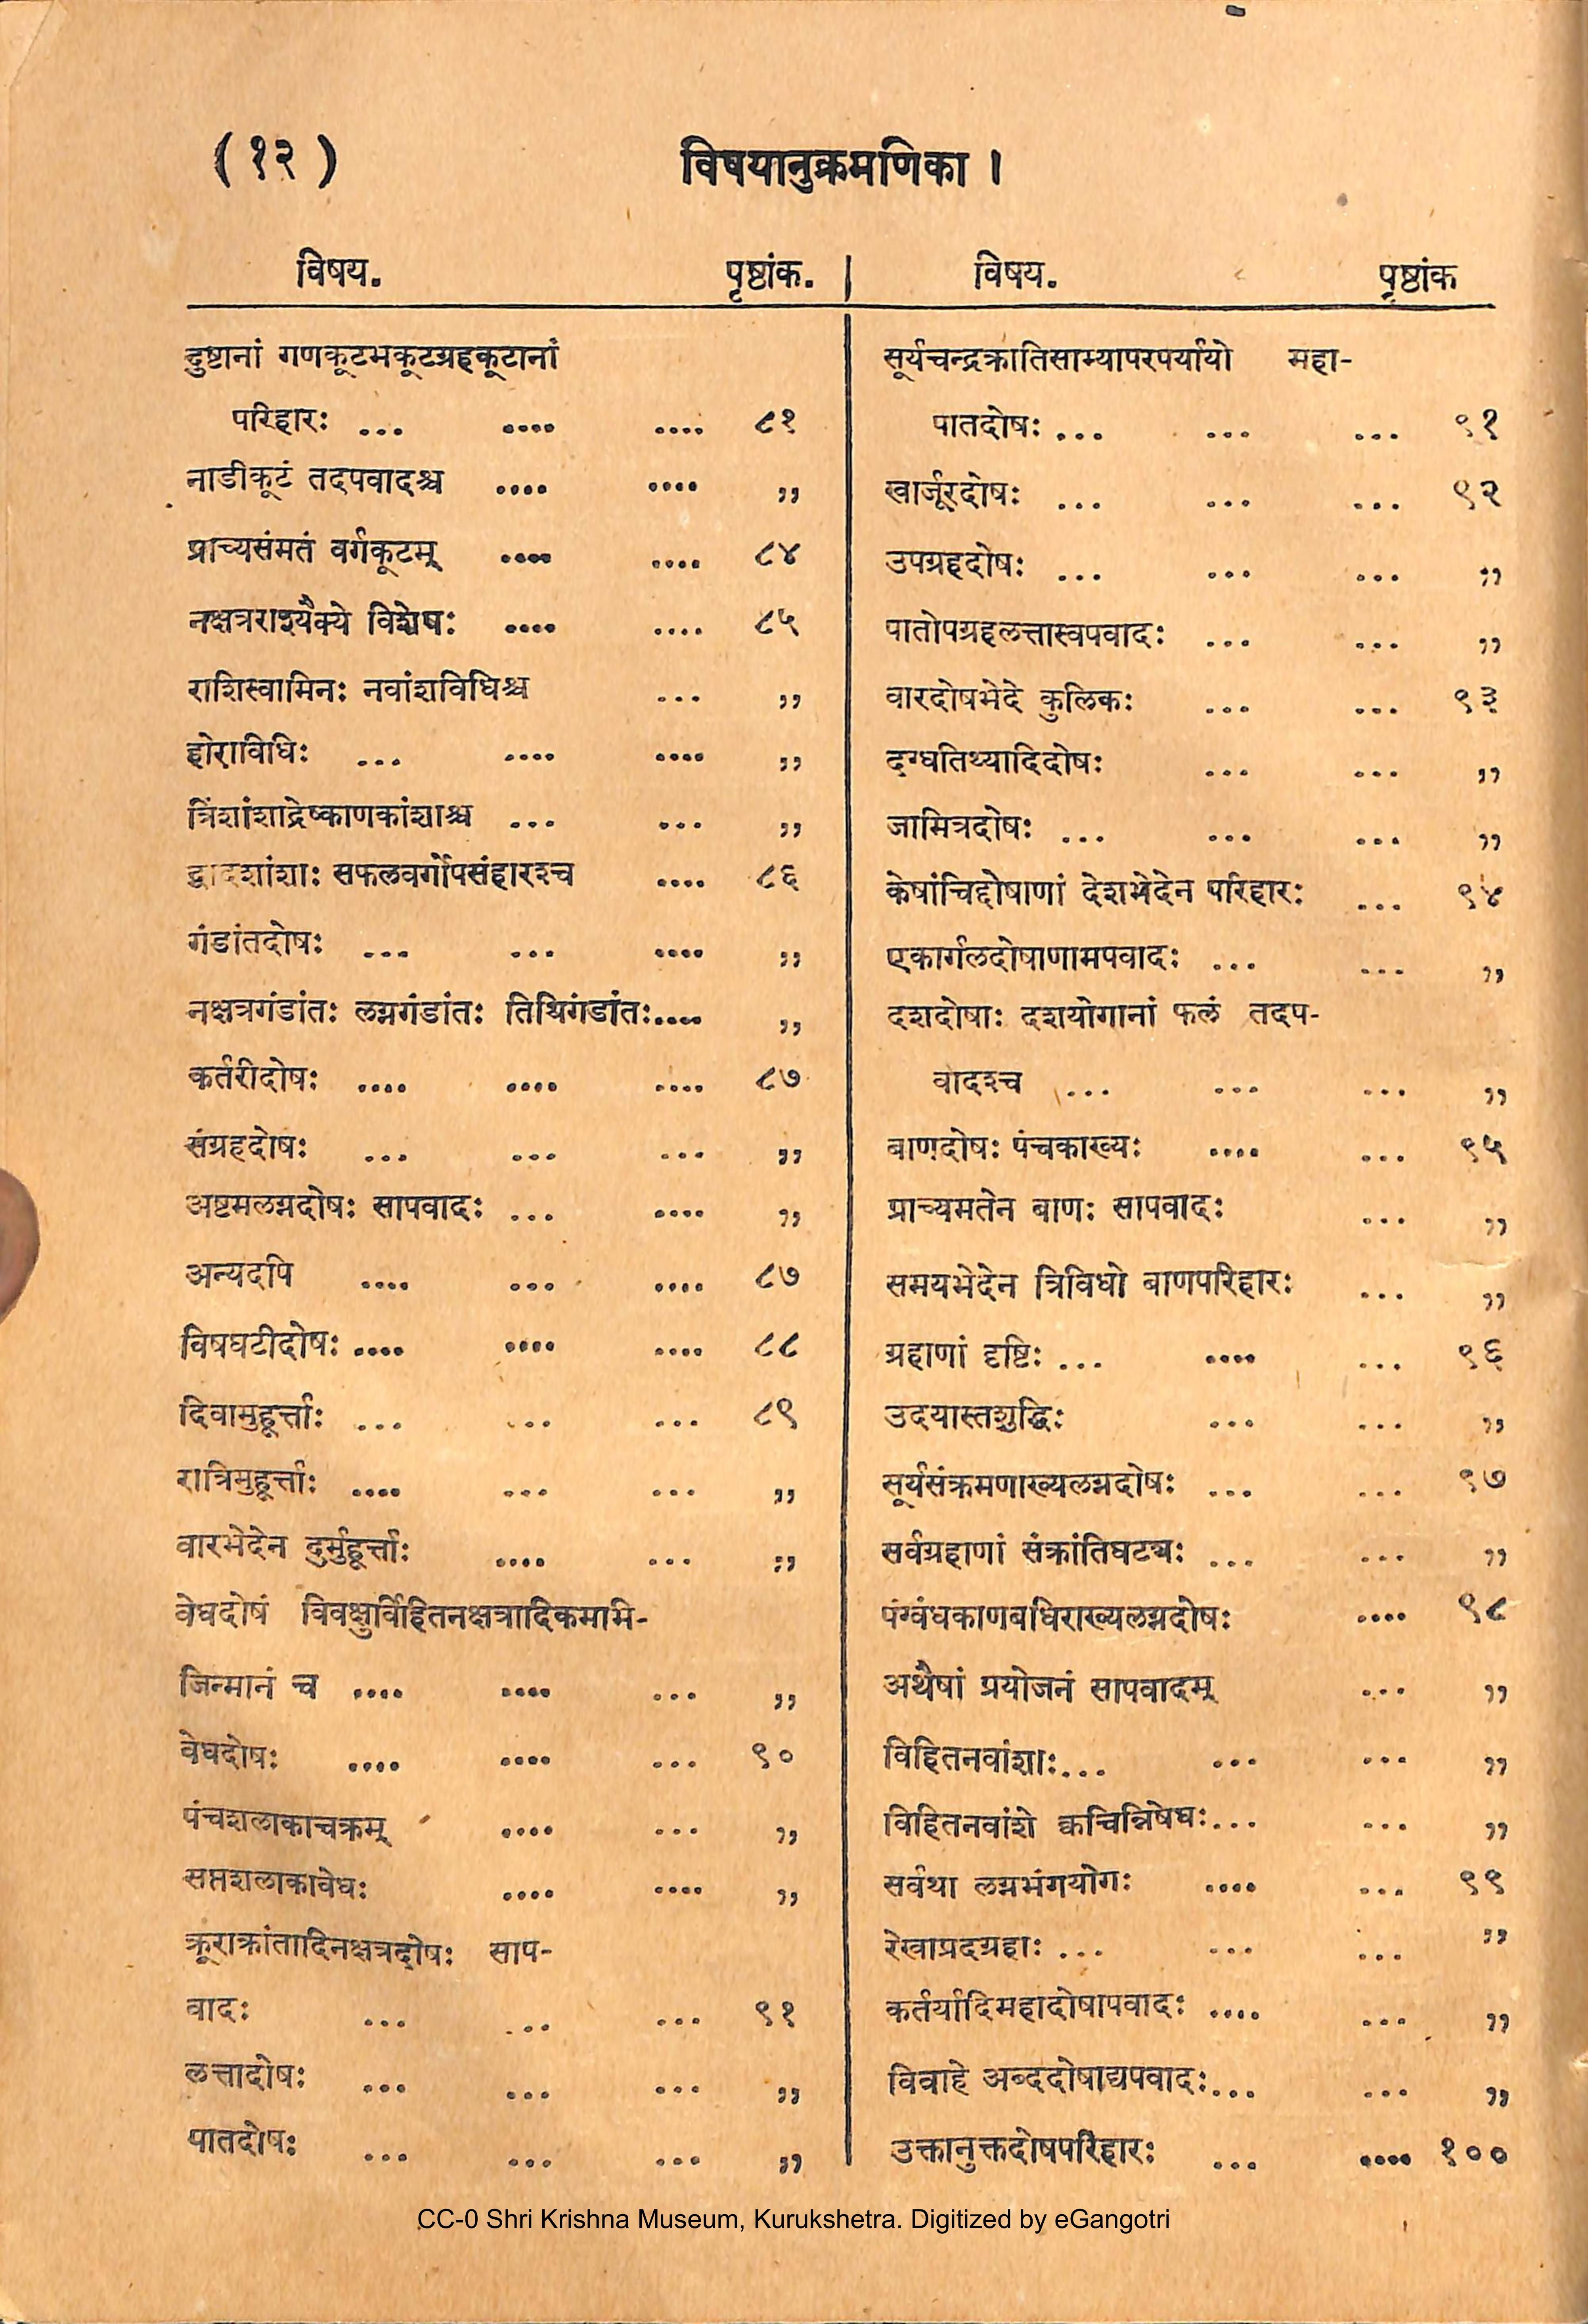 ( १२ ) विषयानुक्रमणिका ।
विषय. पृष्ठांक.
दुष्टानां गणकूटभकूटग्रहकूटानां
परिहारः ... .... .... ८१
नाडीकूटं तदपवादश्च .... .... ,,
प्राच्यसंमतं वर्गकूटम् .... .... ८४
नक्षत्रराश्यैक्ये विशेषः .... .... ८५
राशिस्वामिनः नवांशविधिश्च ... ,,
होराविधिः ... .... .... ,,
त्रिंशांशाद्रेष्काणकांशाश्च ... ... ,,
द्वादशांशाः सफलवर्गोपसंहारश्च .... ८६
गंडांतदोषः ... ... .... ,,
नक्षत्रगंडांतः लग्नगंडांतः तिथिगंडांतः.... ,,
कर्तरीदोषः .... .... .... ८७
संग्रहदोषः ... ... ... ,,
अष्टमलग्नदोषः सापवादः ... .... ,,
अन्यदपि .... ... .... ८७
विषघटीदोषः .... .... .... ८८
दिवामुहूर्त्ताः ... ... ... ८९
रात्रिमुहूर्त्ताः .... ... ... ,,
वारभेदेन दुर्मुहूर्त्ताः .... ... ,,
वेधदोषं विवक्षुर्विहितनक्षत्रादिकमाभि-
जिन्मानं च .... .... ... ,,
वेधदोषः .... .... ... ९०
पंचशलाकाचक्रम् .... ... ,,
सप्तशलाकावेधः .... .... ,,
क्रूराक्रांतादिनक्षत्रदोषः साप-
वादः ... ... ... ९१
लत्तादोषः ... ... ... ,,
पातदोषः ... ... ... ,,
विषय. पृष्ठांक
सूर्यचन्द्रक्रातिसाम्यापरपर्यायो महा-
पातदोषः ... ... ... ९१
खार्जूरदोषः ... ... ... ९२
उपग्रहदोषः ... ... ... ,,
पातोपग्रहलत्तास्वपवादः ... ... ,,
वारदोषभेदे कुलिकः ... ... ९३
दग्धतिथ्यादिदोषः ... ... ,,
जामित्रदोषः ... ... ... ,,
केषांचिद्दोषाणां देशभेदेन परिहारः ... ९४
एकार्गलदोषाणामपवादः ... ... ,,
दशदोषाः दशयोगानां फलं तदप-
वादश्च ... ... ... ,,
बाणदोषः पंचकाख्यः .... ... ९५
प्राच्यमतेन बाणः सापवादः ... ,,
समयभेदेन त्रिविधो बाणपरिहारः ... ,,
ग्रहाणां दृष्टिः ... .... ... ९६
उदयास्तशुद्धिः ... ... ,,
सूर्यसंक्रमणाख्यलग्नदोषः ... ... ९७
सर्वग्रहाणां संक्रांतिघट्यः ... ... ,,
पंग्वंधकाणबधिराख्यलग्नदोषः .... ९८
अथैषां प्रयोजनं सापवादम् ... ,,
विहितनवांशाः... ... ... ,,
विहितनवांशे क्वचिन्निषेधः... ... ,,
सर्वथा लग्नभंगयोगः .... ... ९९
रेखाप्रदग्रहाः ... ... ... ,,
कर्तर्यादिमहादोषापवादः .... ... ,,
विवाहे अब्ददोषाद्यपवादः... ... ,,
उक्तानुक्तदोषपरिहारः ... .... १००
CC-0 Shri Krishna Museum, Kurukshetra. Digitized by eGangotri